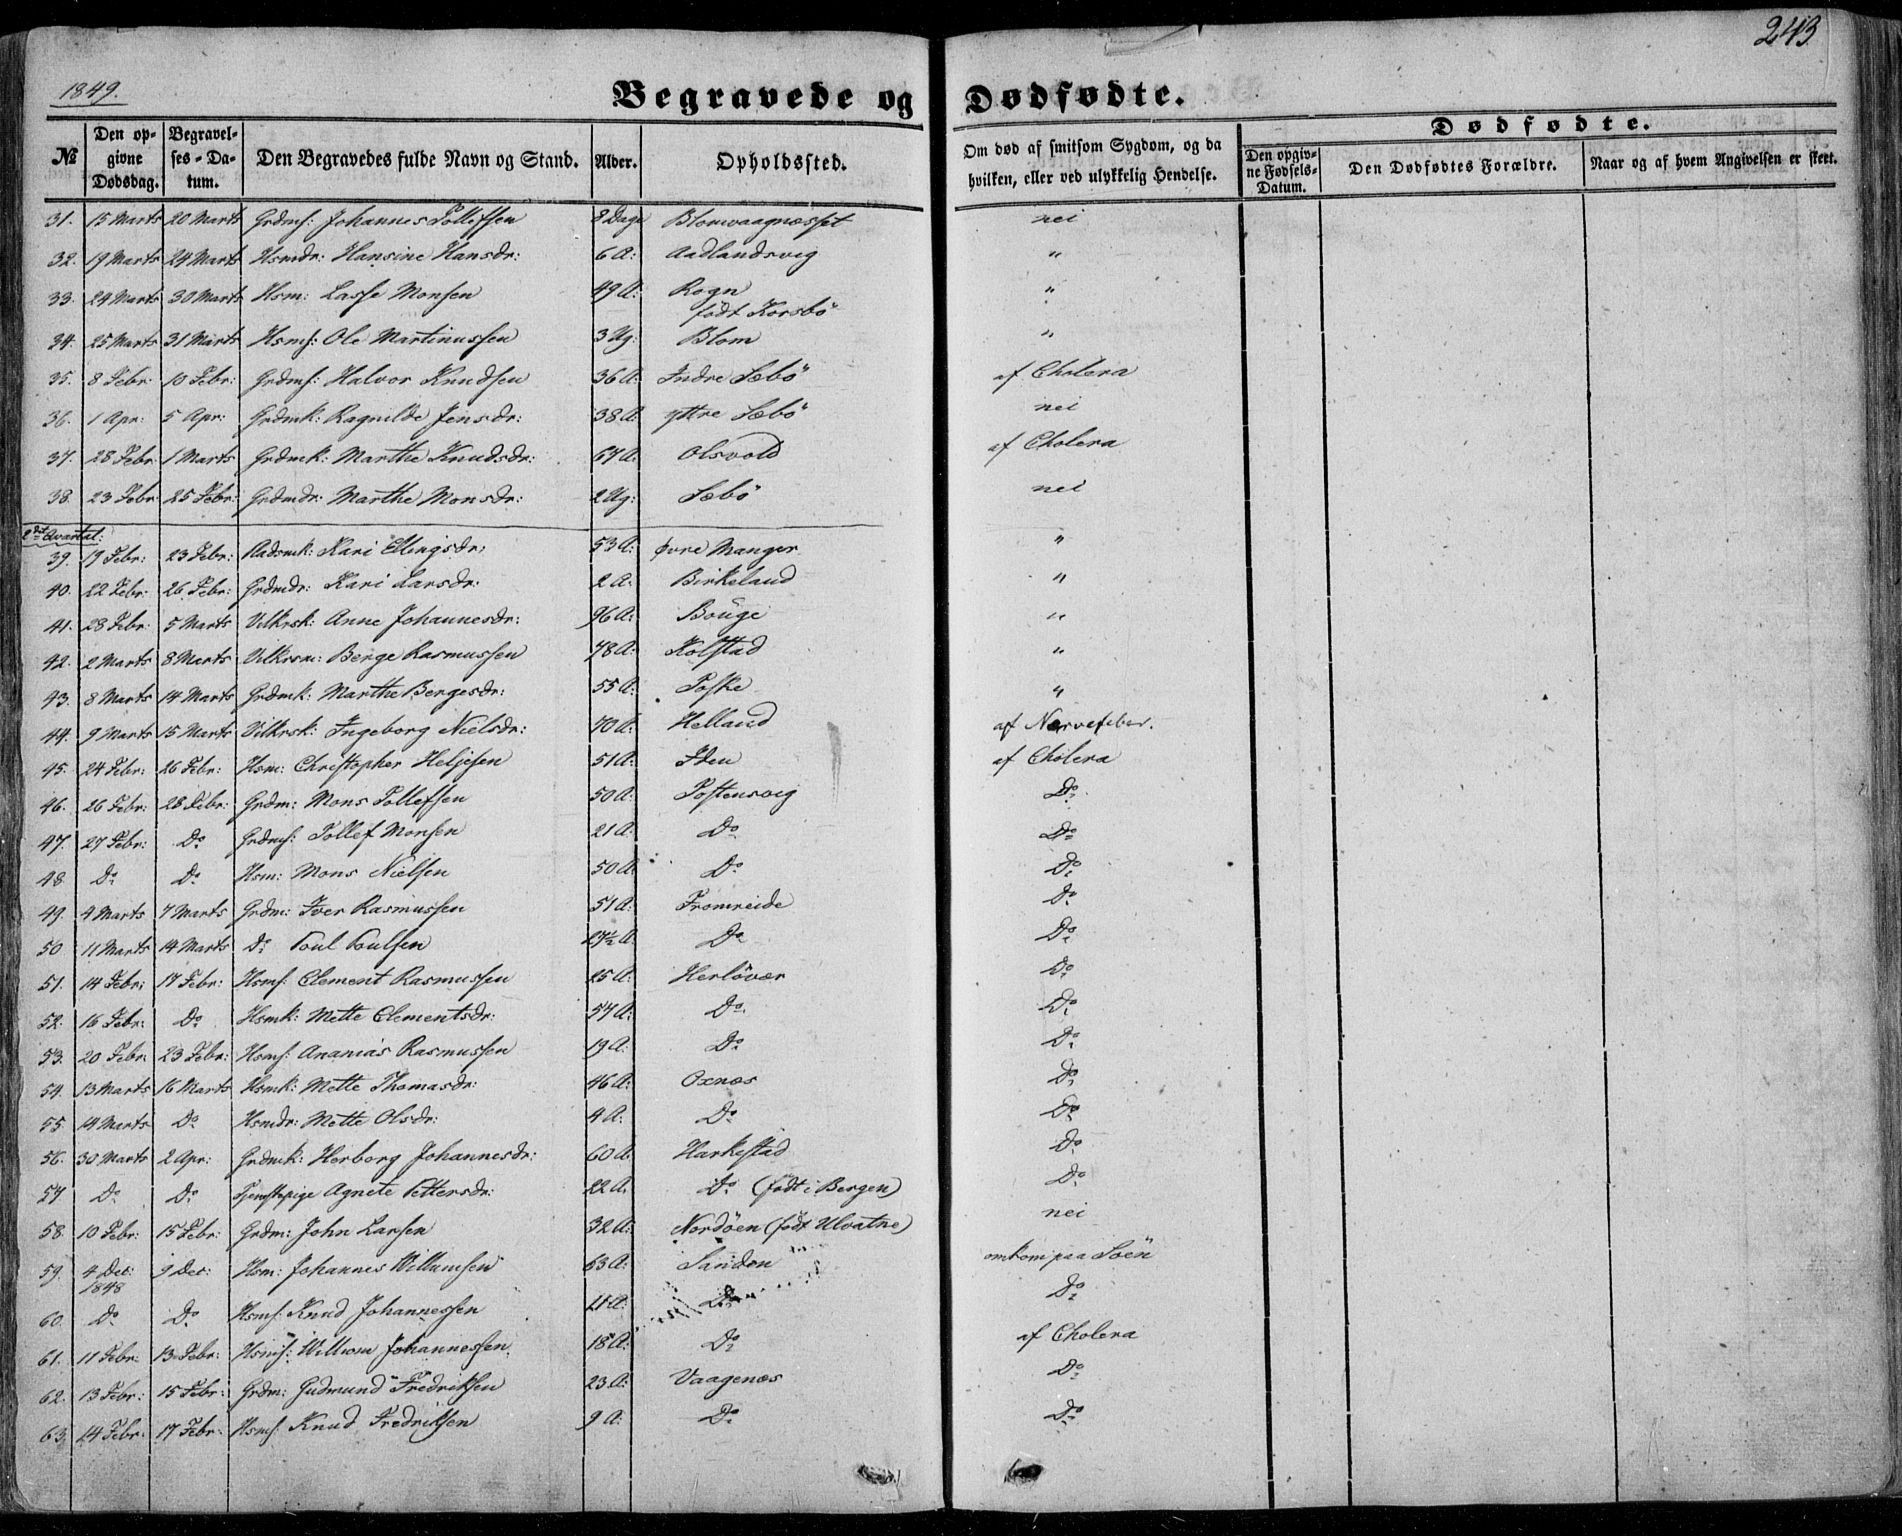 243
1849.
Begravede og Dødfødte.
Dødfødte.
№ Den opgivne Dødsdag. Begravelses-Datum. Den Begravedes fulde Navn og Stand. Alder. Opholdssted. Om død af smitsom Sygdom, og da hvilken, eller ved ulykkelig Hendelse. Den opgivne Fødsels-Datum. Den Dødfødtes Forældre. Naar og af hvem Angivelsen er skeet.
31. 15 Marts 20 Marts Grdms: Johannes Tollefsen 8 Dage Blomvaagnæsset nei
32. 19 Marts 24 Marts Hsmdr: Hansine Hansdr: 6 A: Aadlandsvig "
33. 24 Marts 30 Marts Hsm: Lasse Monsen 49 A: Rogn "
født Korsbö
34. 25 Marts 31 Marts Hsms: Ole Martinussen 3 Ug: Blom "
35. 8 Febr: 10 Febr: Grdms: Halvor Knudsen 36 A: Indre Sæbö af Cholera
36. 1 Apr: 5 Apr: Grdmk: Ragnilde Jensdr: 38 A: yttre Sæbö nei
37. 28 Febr 1 Marts Grdmk: Marthe Knudsdr: 67 A: Olsvold af Cholera
38. 23 Febr 25 Febr: Grdmdr: Marthe Monsdr: 2 Ug: Sæbö nei
2det Qvartal:
39. 19 Febr: 23 Febr: Kari Ellingsdr: 53 A: øvre Manger "
40. 22 Febr: 26 Febr: Grdmdr: Kari Larsdr: 2 A: Birkeland "
41. 28 Febr: 5 Marts Vilkrsk: Anne Johannesdr: 96 A: Bouge "
42. 2 Marts 8 Marts Vilkrsm: Berge Rasmussen 78 A: Kolstad "
43. 8 Marts 14 Marts Grdmk: Marthe Bergesdr: 55 A: Toske "
44. 9 Marts 15 Marts Vilkrsk: Ingeborg Nielsdr: 70 A: Helland af Nervefeber.
45. 24 Febr: 26 Febr: Hsm: Christopher Heljesen 51 A: Iden af Cholera
46. 26 Febr: 28 Febr: Grdm: Mons Tollefsen 50 A: Toftensvig Do
47. 27 Febr: Do Grdms: Tollef Monsen 21 A: Do Do
48 Do Do Hsm: Mons Nielsen 50 A: Do Do
49. 4 Marts 7 Marts Grdm: Iver Rasmussen 51 A: Fromreide Do
50 11 Marts 14 Marts Do Poul Poulsen 27½ A: Do Do
51. 14 Febr: 17 Febr: Hsms: Clement Rasmussen 25 A: Herlövær Do
52. 16 Febr: Do Hsmk: Mette Clementsdr: 57 A: Do Do
53. 20 Febr 23 Febr: Hsms: Ananias Rasmussen 19 A: Do Do
54. 13 Marts 16 Marts Hsmk: Mette Thomasdr: 46 A: Oxnæs Do
55 14 Marts Do Hsmdr: Mette Olsdr: 4 A: Do Do
56. 30 Marts 2 Apr: Grdmk: Herborg Johannesdr: 60 A: Harkestad Do
57 Do Do Tjenstepige Agnete Pettersdr: 22 A. Do (født i Bergen) Do
58. 10 Febr: 15 Febr: Grdm: John Larsen 32 A: Nordöen (født Ulvatne) nei
59. 4 Dec: 9 Dec: Hsm: Johannes Willumsen 63 A: Sanden omkom paa Söen
1848
60. Do Do Hsms: Knud Johannessen 21 A: Do Do
61. 11 Febr: 13 Febr: Hsms: Willum Johannessen 18 A: Do af Cholera
62. 13 Febr: 15 Febr: Grdm: Gudmund Fredriksen 23 A: Vaagenæs Do
63. 14 Febr: 17 Febr: Hsms: Knud Fredriksen 9 A: Do Do